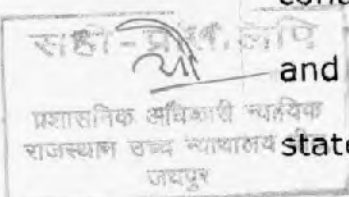 सही-प्रतिलिपि
and
प्रशासनिक अधिकारी न्यायिक
राजस्थान उच्च न्यायालय
state
जयपुर